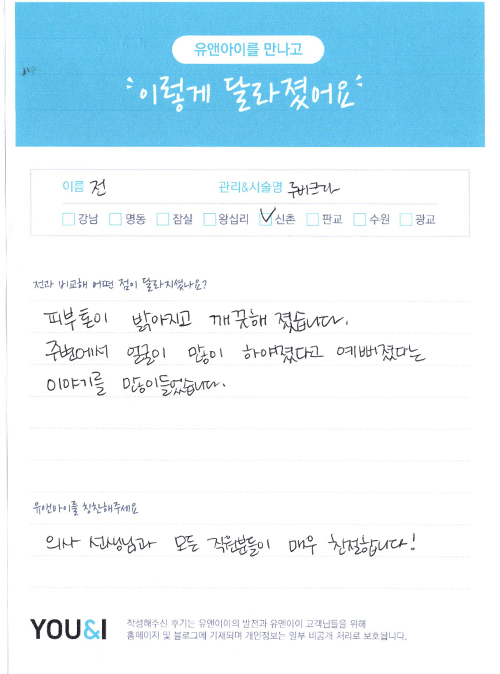 유앤아이를 만나고
이렇게 달라졌어요
이름 전 관리&시술명 쿠비크다
강남 명동 잠실 왕십리 신촌 판교 수원 광교
전과 비교해 어떤 점이 달라지셨나요?
피부톤이 밝아지고 깨끗해 졌습니다.
주변에서 얼굴이 많이 하얘졌다고 예뻐졌다는
이야기를 많이들었습니다.
유앤아이를 칭찬해주세요
의사 선생님과 모든 직원분들이 매우 친절합니다!
YOU&I
작성해주신 후기는 유앤아이의 발전과 유앤아이 고객님들을 위해
홈페이지 및 블로그에 기재되며 개인정보는 일부 비공개 처리로 보호됩니다.